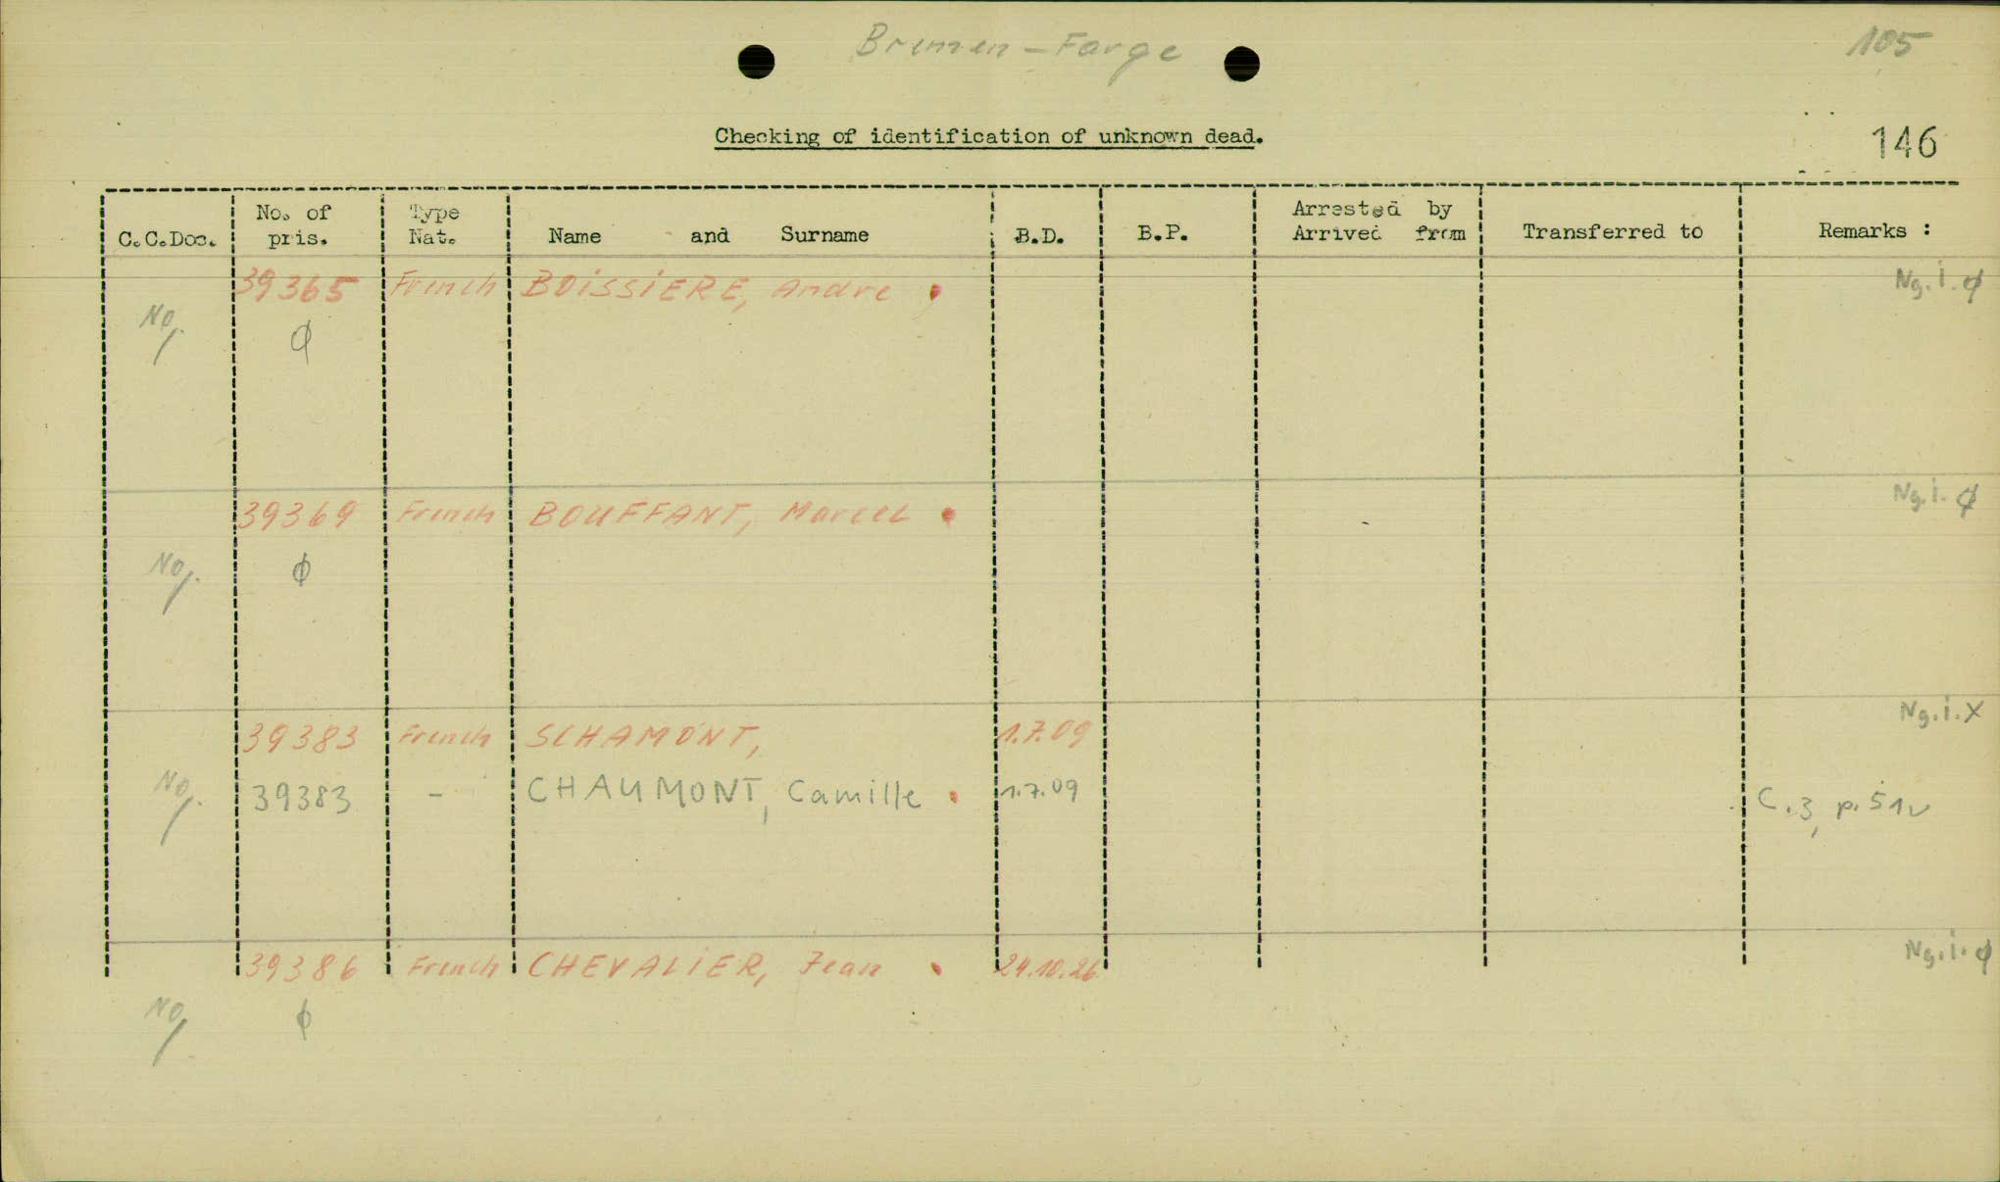 Bremen-Farge
105
Checking of identification of unknown dead.
146
C.C.Doc. No. of pris. Type Nat. Name and Surname B.D. B.P. Arrested by Arrived from Transferred to Remarks :
39365 French BOiSSiERE, Andre Ng.i.ϕ
No. ϕ
39369 French BOUFFANT, Marcel Ng.i.ϕ
No. ϕ
39383 French SCHAMONT, 1.7.09 Ng.i.X
No. 39383 - CHAUMONT, Camille 1.7.09 C.3, p.51v
39386 French CHEVALIER, Jean 24.10.26 Ng.i.ϕ
No ϕ